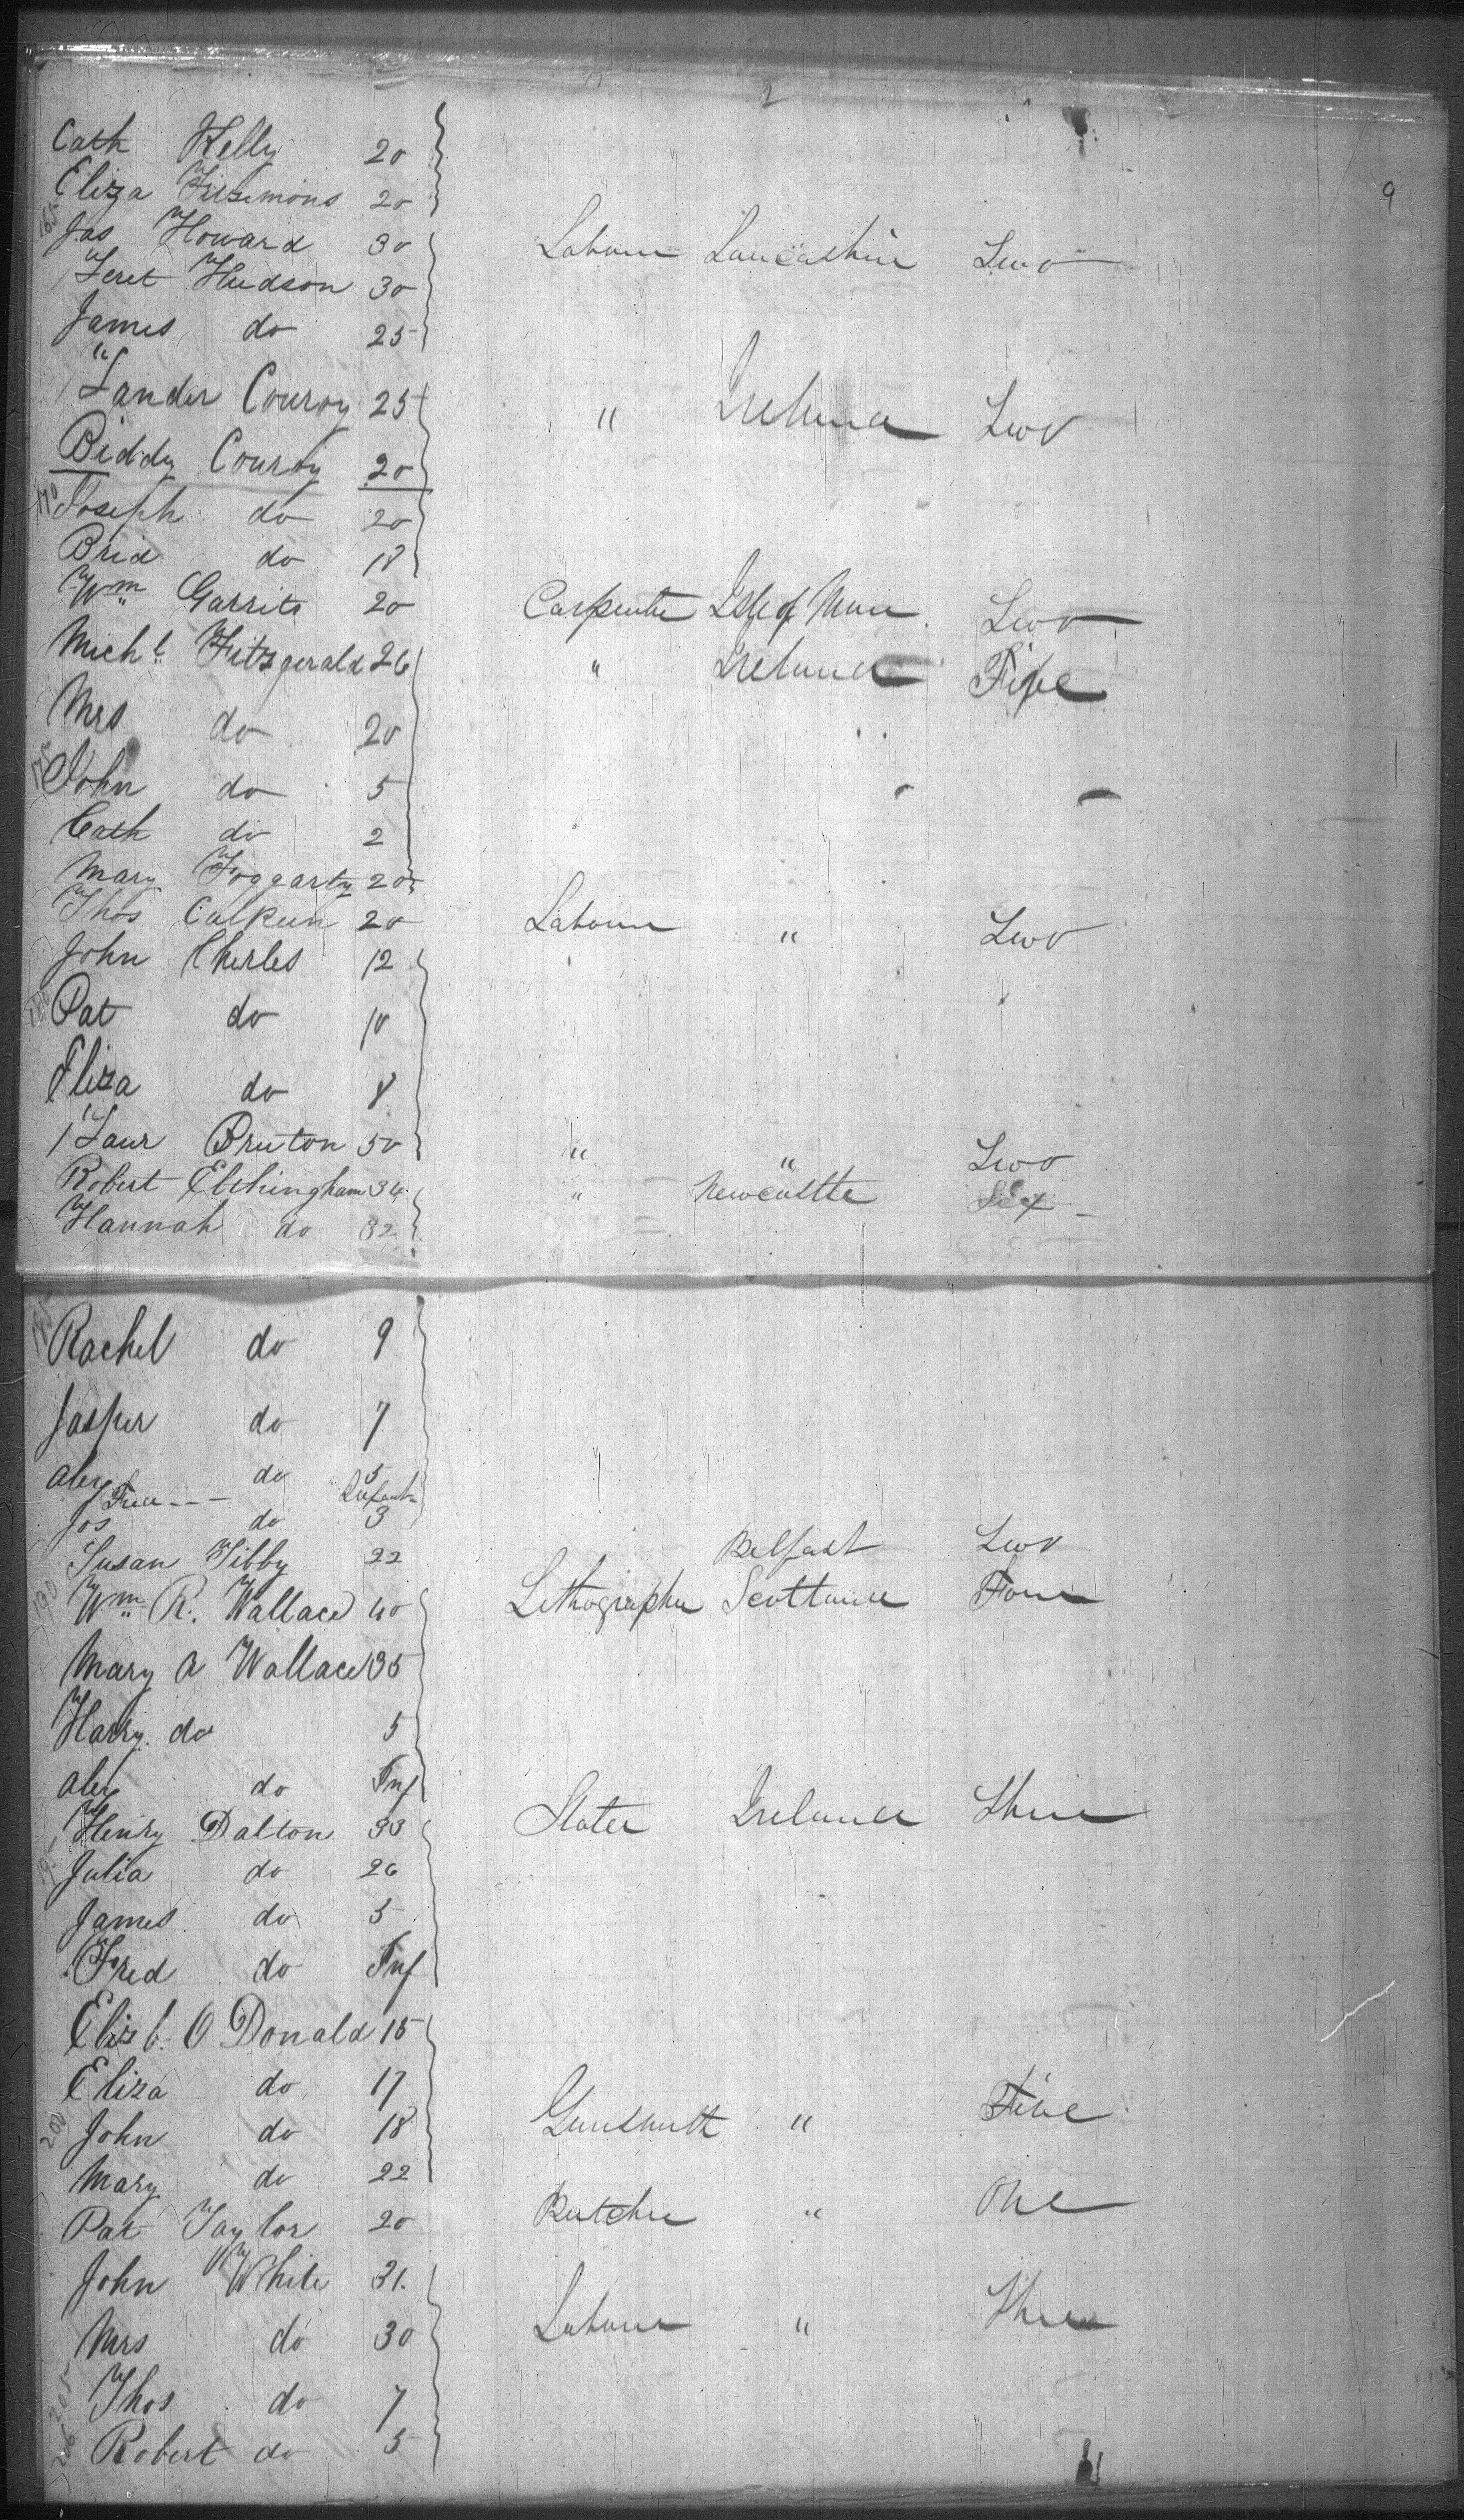 2
9
Cath Kelly 20
Eliza Fitzsimons 20
165 Jas Howard 30 Labour Lancashire Two
Hudson 30
James do 25
Conroy 25 " Ireland Two
Biddy Conroy 20
170 Joseph do 20
Brid do 18
Wm Garrits 20 Carpenter Isle of Man Two
Michl Fitzgerald 26 " Ireland Five
Mrs do 20
175 John do 5
Cath do 2
Mary Foggarty 20
Thos Culkeen 20 Labour " Two
John Cherles 12
180 Pat do 10
Eliza do 8
Laur Bruton 50 " " Two
Robert Eltringham 34 " Newcastle Six
Hannah do 32
185 Rachel do 9
Jasper do 7
Alex do 5
Infant
Jos do 3
Susan Tibby 22 Belfast Two
190 Wm R. Wallace 40 Lithographer Scotland Four
Mary A Wallace 35
Harry do 5
Alex do Inf
Henry Dalton 33 Slater Ireland Three
195 Julia do 26
James do 5
Fred do Inf
Elizb. O Donald 15
Eliza do 17
200 John do 18 Gunsmith " Five
Mary do 22
Pat Taylor 20 Butcher " One
John White 31. Labour " Three
Mrs do 30
205 Thos do 7
206 Robert do 5